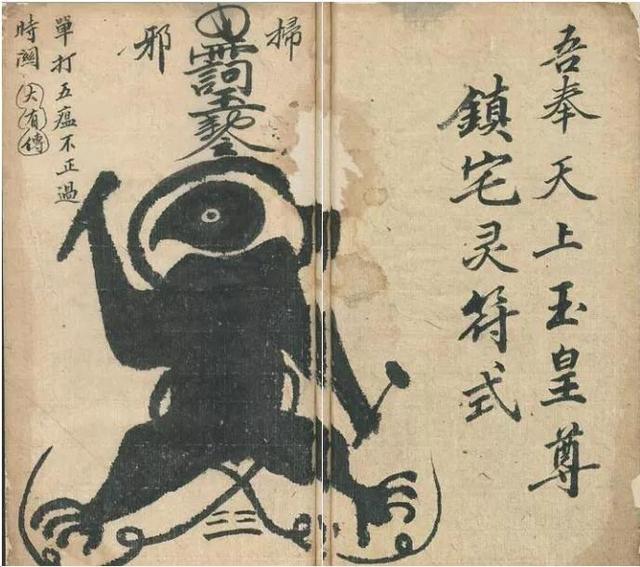 吾奉天上玉皇尊
鎮宅灵符式
掃
邪
單打五瘟不正過
時闗
大有傳